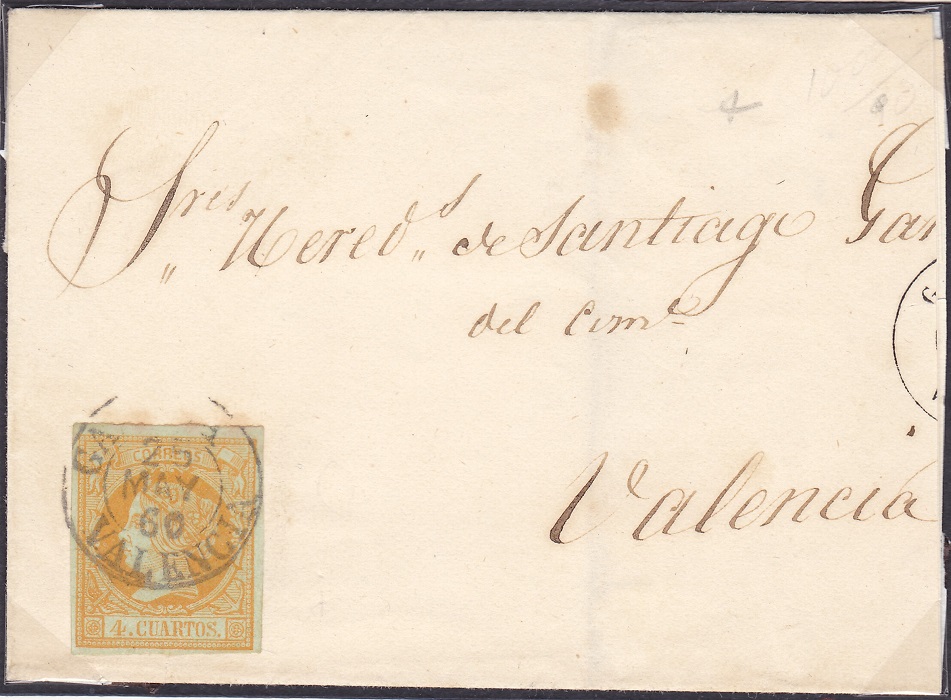 Sres Hereds de Santiago Gar
del Como
Valencia
CORREOS
25
MAY
60
VALENCIA
4. CUARTOS.